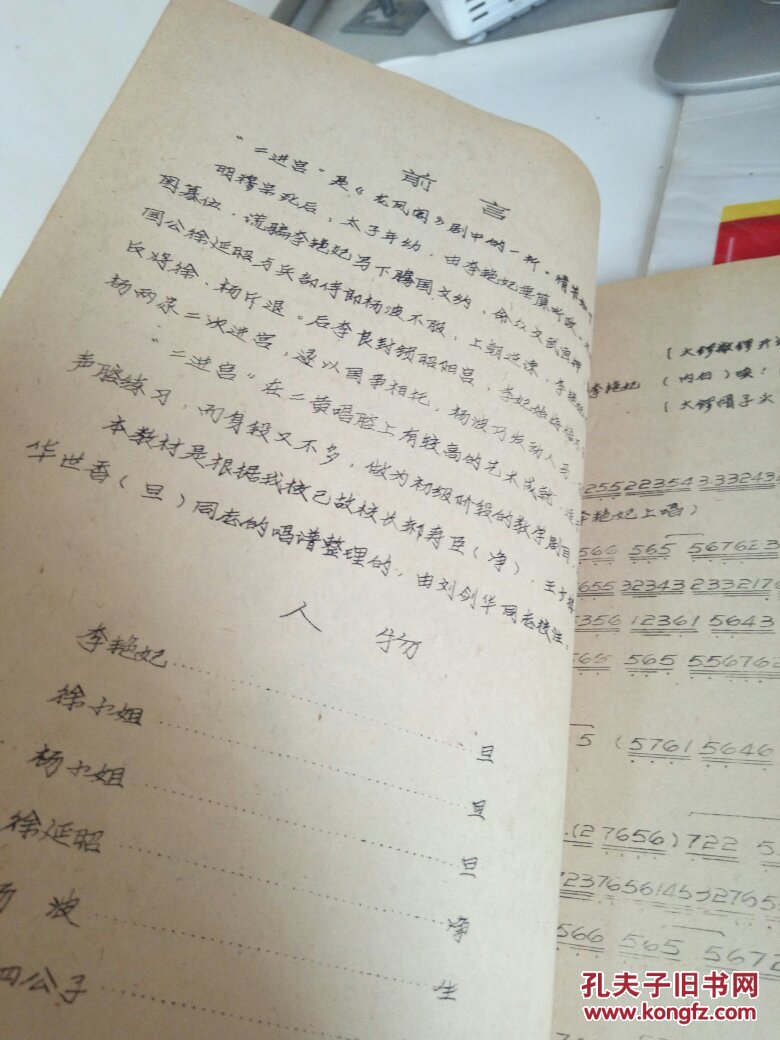 前言
"二进宫"是《龙凤阁》剧中的一折。情节如下
明穆宗死后,太子年幼,由李艳妃垂簾听政,
图篡位,谎骗李艳妃写下腾国文约,命众文武画押
国公徐延昭与兵部侍郎杨波不服,上朝边谏,李艳妃
反将徐、杨斥退。后李良封锁昭阳宫,李妃
杨两录二次进宫,遂以国事相托,杨波巧发动人马
"二进宫"在二黄唱腔上有较高的艺术成就,
声腔练习,而身段又不多,做为初级阶段的教学剧目。
本教材是根据我校已故校长郝寿臣(净)、王少
华世香(旦)同志的唱谱整理的,由刘剑华同志校注。
人物
李艳妃……旦
徐小姐……旦
杨小姐……旦
徐延昭……净
波……生
四公子
李艳妃 (内白)
(大锣帽子头
255 22354 333243
李艳妃上唱)
566 565 567623
655 32343 2332176
2356 12361 5643
565 556762
5 (5761 5646
(27656) 722 5
7237656145327655
566 565 5672
孔夫子旧书网
www.kongfz.com